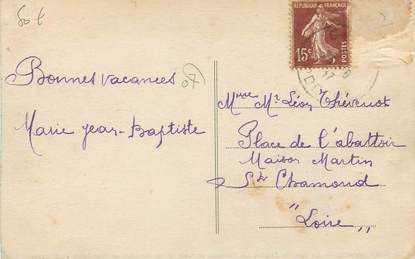 50 t
Bonnes vacances
Marie Jean-Baptiste
REPUBLIQUE FRANÇAISE
15c
POSTES
Mme Mr Léon Thévenot
Place de l'abattoir
Maison Martin
St Chamond
"Loire"